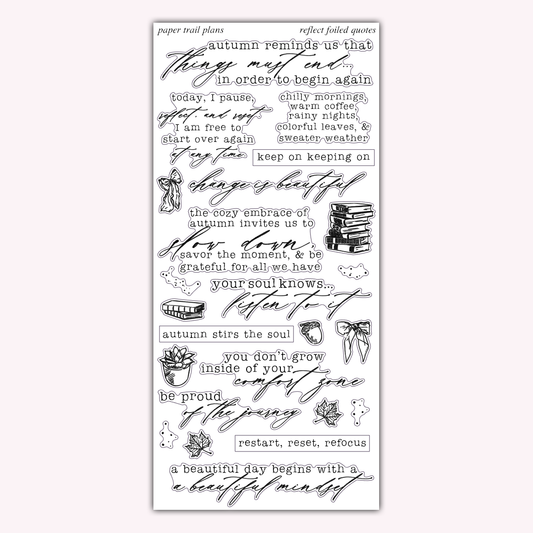 paper trail plans
reflect foiled quotes
autumn reminds us that
things must end...
in order to begin again
today, I pause,
reflect, and reset
I am free to
start over again
at any time
chilly mornings,
warm coffee
rainy nights,
colorful leaves, &
sweater weather
keep on keeping on
change is beautiful
the cozy embrace of
autumn invites us to
slow down,
savor the moment, & be
grateful for all we have
your soul knows...
listen to it
autumn stirs the soul
you don't grow
inside of your
comfort zone
be proud
of the journey
restart, reset, refocus
a beautiful day begins with a
a beautiful mindset